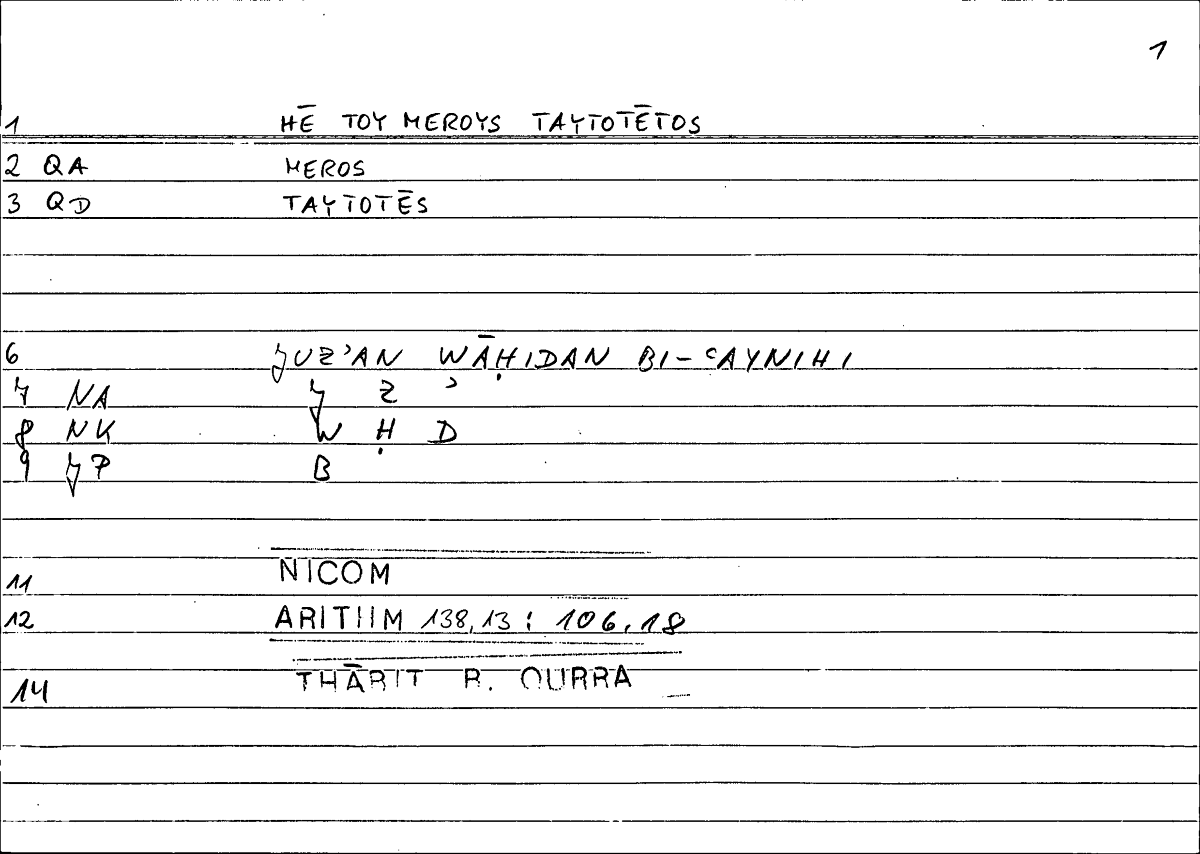 1
1 HĒ TOY MEROYS TAYTOTĒTOS
2 QA MEROS
3 QD TAYTOTĒS
6 JUZʾAN WĀḤIDAN BI-ʿAYNIHI
7 NA J Z ʾ
8 NK W Ḥ D
9 JP B
11 NICOM
12 ARITIIM 138,13 : 106,18
14 THĀBIT B. QURRA